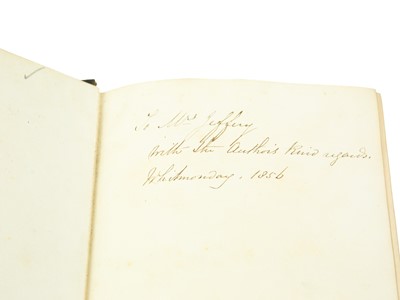 To Mrs Jeffery
with the Author's kind regards.
Whitmonday. 1856